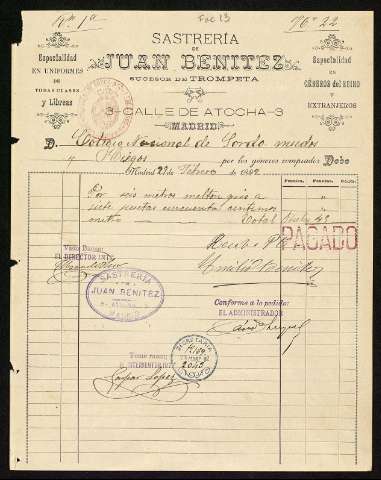 Rn 1ª
Fol 13
Nº 22
SASTRERÍA
DE
JUAN BENITEZ
SUCESOR DE TROMPETA
Especialidad
EN UNIFORMES
DE TODAS CLASES
y Libreas
Especialidad
EN
GÉNEROS DEL REINO
Y
EXTRANJEROS
3-CALLE DE ATOCHA-3
MADRID
D. Colegio Nacional de Sordo mudos
y Ciegos por los géneros comprados Debe
Madrid 29 Febrero 1892
Por seis metros melton gris a
siete pesetas cincuenta centimos
metro Total
Recibí
PAGADO
EL DIRECTOR
Emilio Benitez
SASTRERÍA
JUAN BENITEZ
MADRID
Conforme a lo pedido:
EL ADMINISTRADOR
Tomé razon:
INTERVENTOR
Gaspar Lopez